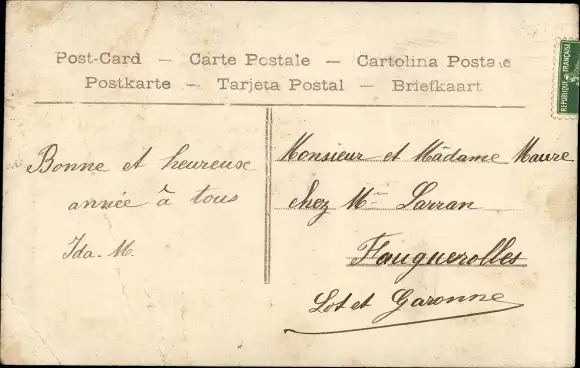 Post-Card — Carte Postale — Cartolina Postale
Postkarte — Tarjeta Postal — Briefkaart
Bonne et heureuse
année à tous
Ida. M.
Monsieur et Madame Maure
chez Mr Larran
Fauguerolles
Lot et Garonne
REPUBLIQUE FRANÇAISE